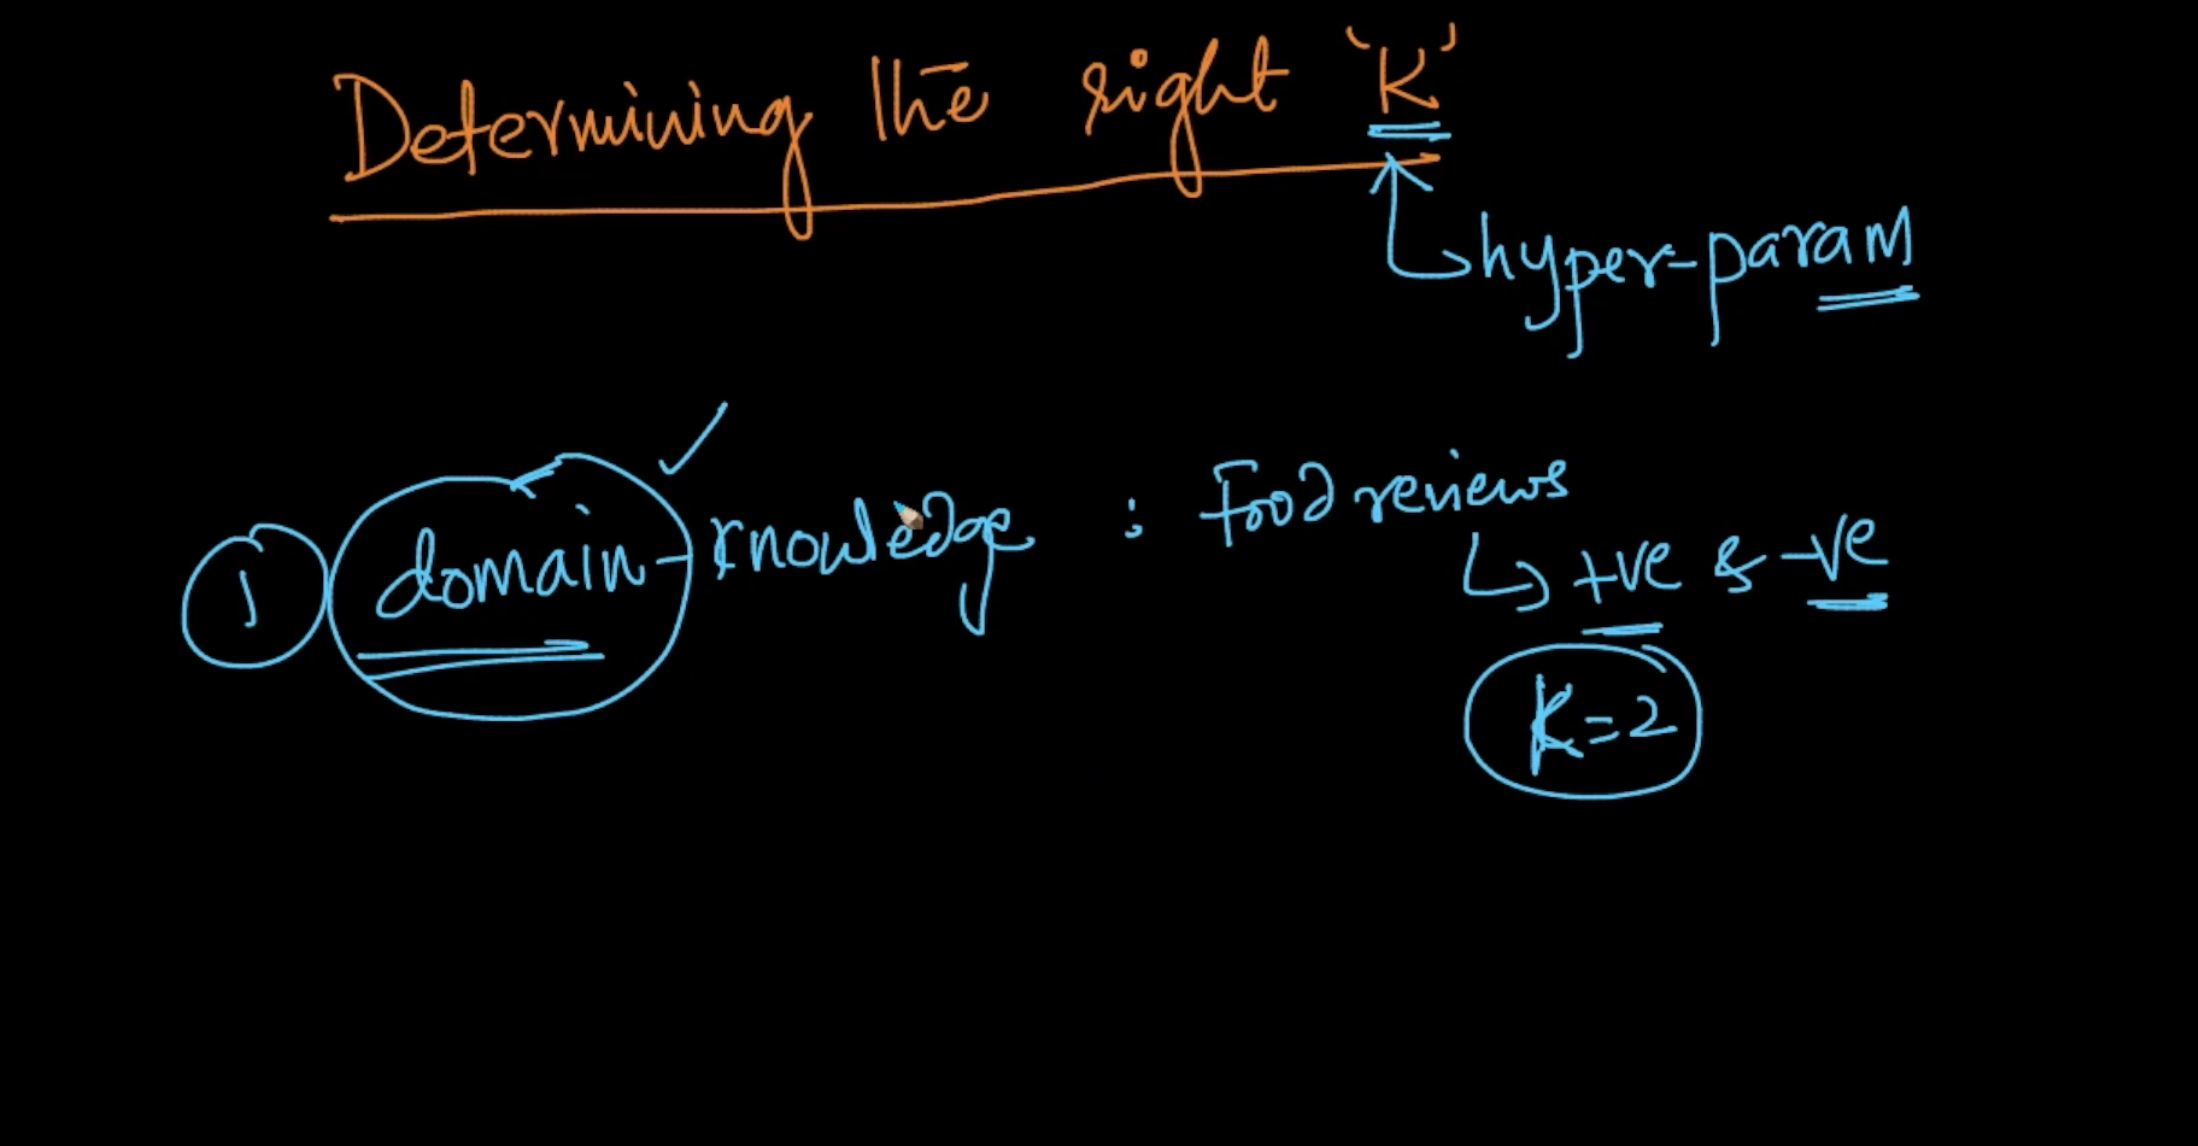 Determining the right 'K'
hyper-param
① domain-knowledge : Food reviews
+ve & -ve
K=2